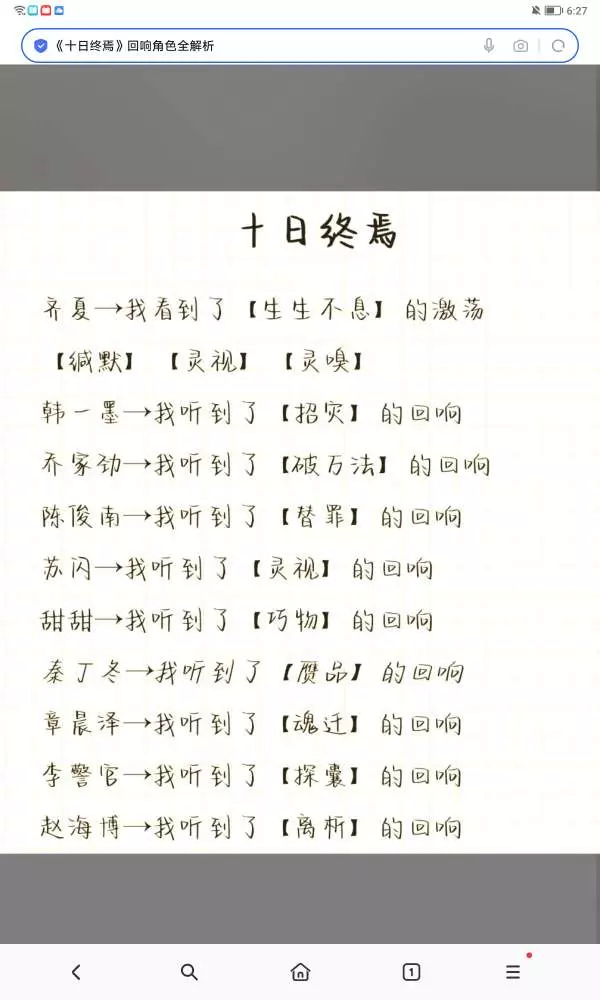 6:27
《十日终焉》回响角色全解析
十日终焉
齐夏→我看到了【生生不息】的激荡
【缄默】【灵视】【灵嗅】
韩一墨→我听到了【招灾】的回响
乔家劲→我听到了【破万法】的回响
陈俊南→我听到了【替罪】的回响
苏闪→我听到了【灵视】的回响
甜甜→我听到了【巧物】的回响
秦丁冬→我听到了【赝品】的回响
章晨泽→我听到了【魂迁】的回响
李警官→我听到了【探囊】的回响
赵海博→我听到了【离析】的回响
1